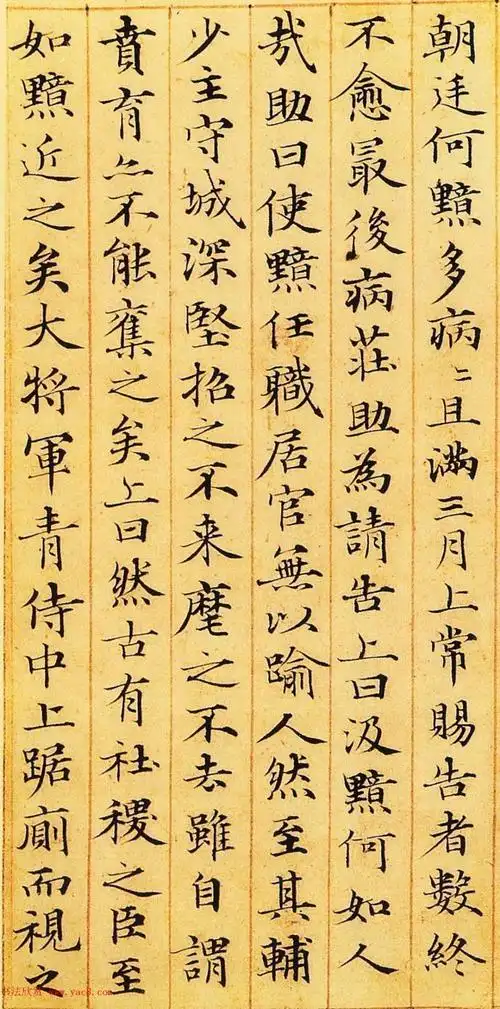 朝廷何黯多病〻且滿三月上常賜告者數終
不愈最後病莊助為請告上曰汲黯何如人
㢤助曰使黯任職居官無以踰人然至其輔
少主守城深堅招之不来麾之不去雖自謂
賁育亦不能奪之矣上曰然古有社稷之臣至
如黯近之矣大將軍青侍中上踞廁而視之
书法欣赏 www.yac8.com